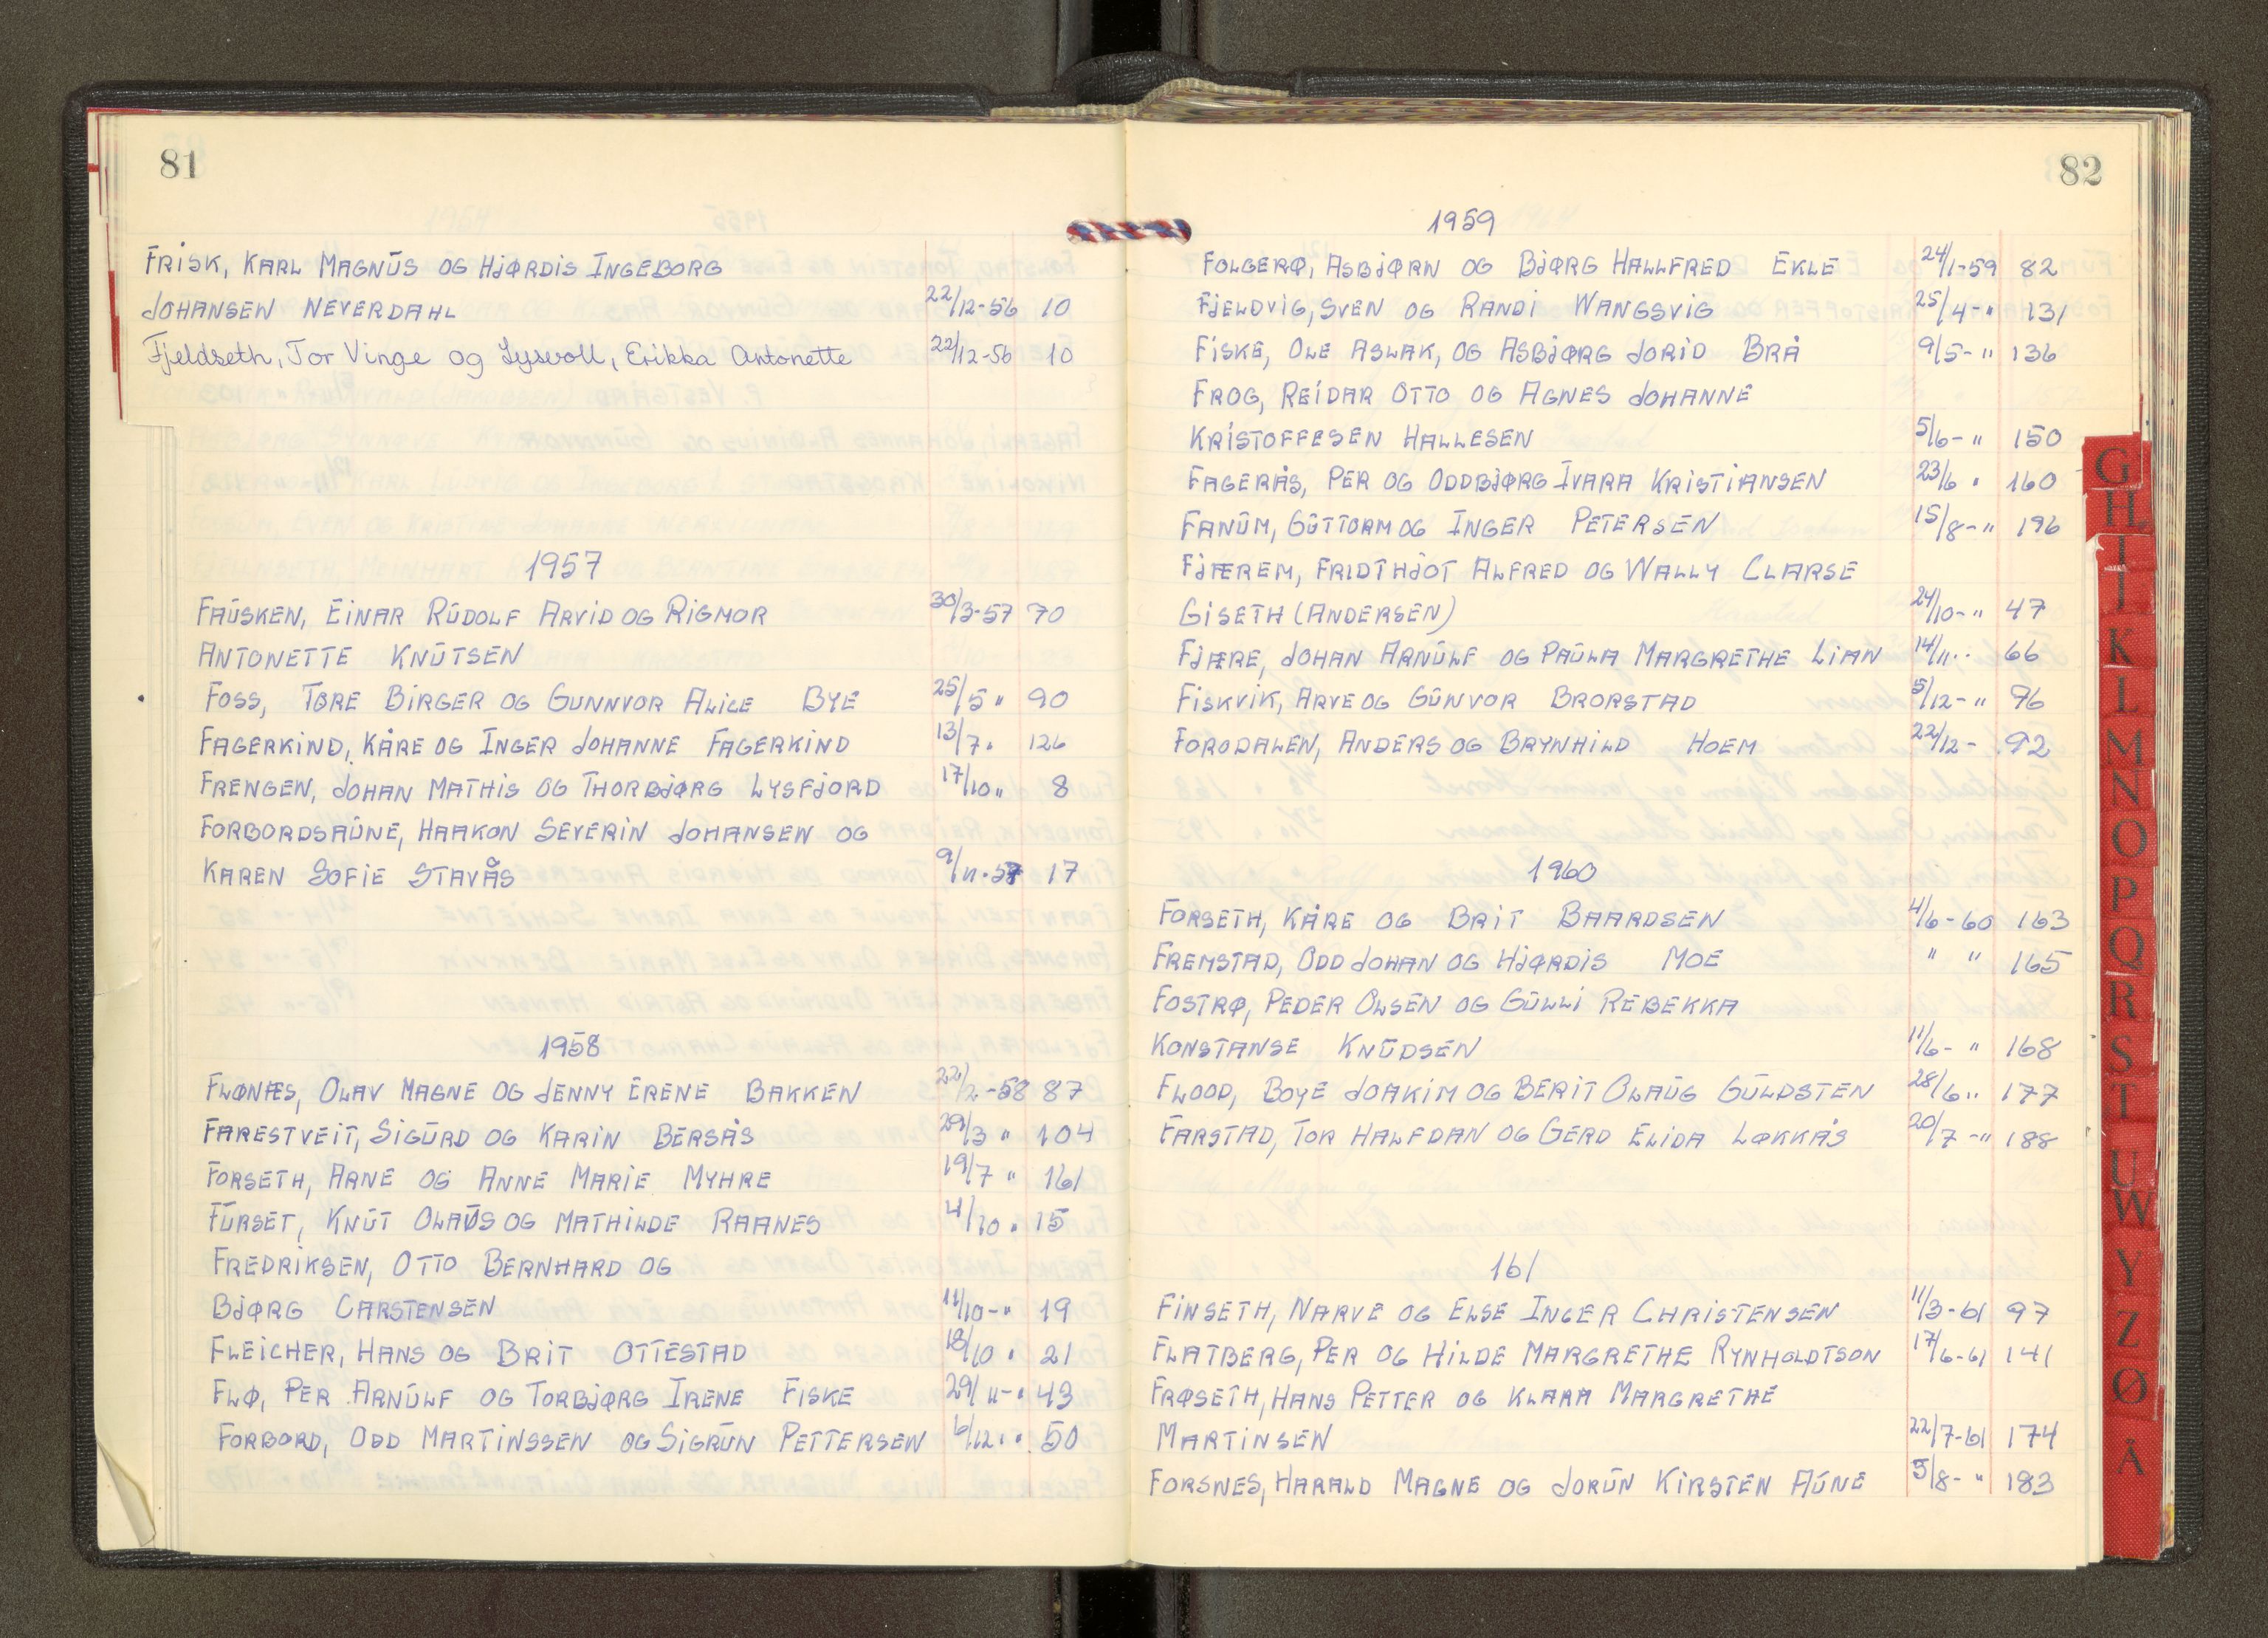 81
FRISK, KARL MAGNŪS OG HJØRDIS INGEBORG
JOHANSEN NEVERDAHL 22/12-56 10
Fjeldseth, Tor Vinge og Lysvoll, Erikka Antonette 22/12-56 10
1957
FAŪSKEN, EINAR RŪDOLF ARVID OG RIGMOR 30/3-57 70
ANTONETTE KNŪTSEN
FOSS, TORE BIRGER OG GUNNVOR ALICE BYE 25/5 " 90
FAGERKIND, KÅRE OG INGER JOHANNE FAGERKIND 13/7 " 126
FRENGEN, JOHAN MATHIS OG THORBJØRG LYSFJORD 17/10 " 8
FORBORDSAŪNE, HAAKON SEVERIN JOHANSEN OG
KAREN SOFIE STAVÅS 9/11-57 17
1958
FLØNÆS, OLAV MAGNE OG JENNY ERENE BAKKEN 22/2-58 87
FARESTVEIT, SIGŪRD OG KARIN BERSÅS 29/3 " 104
FORSETH, ARNE OG ANNE MARIE MYHRE 19/7 " 161
FŪRSET, KNŪT OLAŪS OG MATHILDE RAANES 4/10 " 15
FREDRIKSEN, OTTO BERNHARD OG
BJØRG CARSTENSEN 11/10-" 19
FLEICHER, HANS OG BRIT OTTESTAD 18/10 " 21
FLØ, PER ARNŪLF OG TORBJØRG IRENE FISKE 29/11-" 43
FORBORD, ODD MARTINSSEN OG SIGRŪN PETTERSEN 6/12 " 50
82
1959
FOLGERØ, ASBJØRN OG BJØRG HALLFRED EKLE 24/1-59 82
FJELDVIG, SVEN OG RANDI WANGSVIG 25/4-" 131
FISKE, OLE ASLAK, OG ASBJØRG JORID BRÅ 9/5-" 136
FROG, REIDAR OTTO OG AGNES JOHANNE
KRISTOFFESEN HALLESEN 5/6-" 150
FAGERÅS, PER OG ODDBJØRG IVARA KRISTIANSEN 23/6 " 160
FANŪM, GŪTTORM OG INGER PETERSEN 15/8-" 196
FJÆREM, FRIDTHJOT ALFRED OG WALLY CLARSE
GISETH (ANDERSEN) 24/10-" 47
FJÆRE, JOHAN ARNŪLF OG PAŪLA MARGRETHE LIAN 14/11 " 66
FISKVIK, ARVE OG GŪNVOR BRORSTAD 5/12-" 76
FORODALEN, ANDERS OG BRYNHILD HOEM 22/12- 92
1960
FORSETH, KÅRE OG BRIT BAARDSEN 4/6-60 163
FREMSTAD, ODD JOHAN OG HJØRDIS MOE " " 165
FOSTRØ, PEDER OLSEN OG GŪLLI REBEKKA
KONSTANSE KNŪDSEN 11/6-" 168
FLOOD, BOYE JOAKIM OG BERIT OLAŪG GŪLDSTEN 28/6 " 177
FARSTAD, TOR HALFDAN OG GERD ELIDA LØKKÅS 20/7-" 188
161
FINSETH, NARVE OG ELSE INGER CHRISTENSEN 11/3-61 97
FLATBERG, PER OG HILDE MARGRETHE RYNHOLDTSON 17/6-61 141
FRØSETH, HANS PETTER OG KLARA MARGRETHE
MARTINSEN 22/7-61 174
FORSNES, HARALD MAGNE OG JORŪN KIRSTEN AŪNE 5/8-" 183
G
H
I
J
K
L
M
N
O
P
Q
R
S
T
U
W
Y
Z
Ø
Å